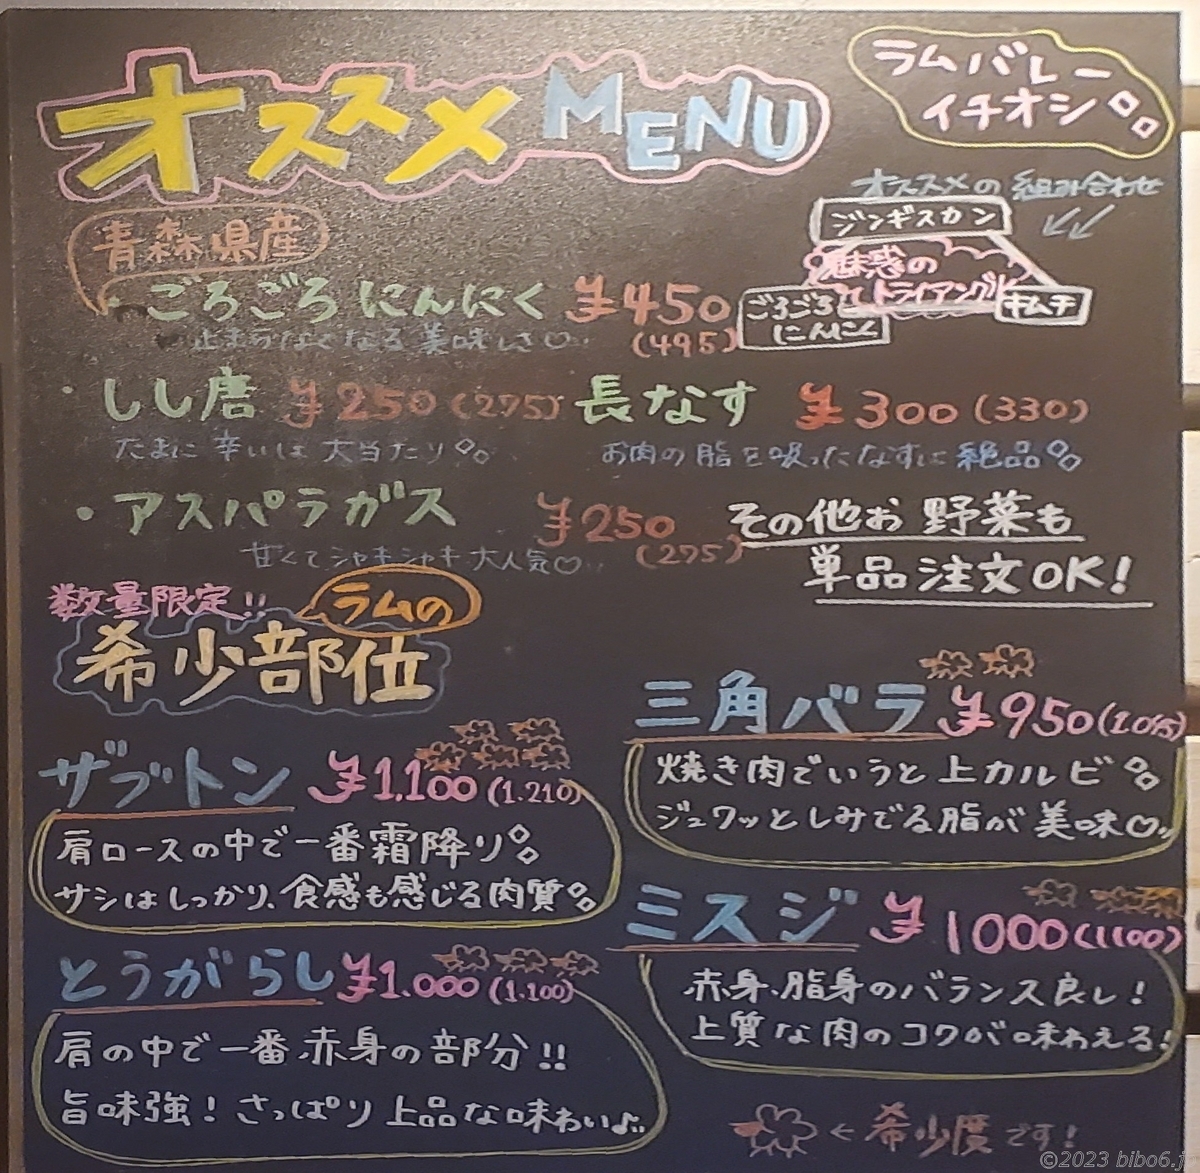 オススメ MENU
ラムバレー
イチオシ
オススメの組み合わせ
ジンギスカン
魅惑の
トライアングル
ごろごろ
にんにく
キムチ
青森県産
・ごろごろにんにく ¥450
(495)
止まらなくなる美味しさ♡
・しし唐 ¥250(275)
たまに辛いは大当たり
長なす ¥300(330)
お肉の脂を吸ったなすは絶品
・アスパラガス ¥250
(275)
甘くてシャキシャキ大人気♡
その他お野菜も
単品注文OK!
数量限定!!
ラムの
希少部位
ザブトン ¥1.100(1.210)
肩ロースの中で一番霜降り
サシはしっかり、食感も感じる肉質
とうがらし ¥1.000(1.100)
肩の中で一番赤身の部分!!
旨味強!さっぱり上品な味わい♪
三角バラ ¥950(1.045)
焼き肉でいうと上カルビ
ジュワッとしみでる脂が美味♡
ミスジ ¥1000(1100)
赤身、脂身のバランス良し!
上質な肉のコクが味わえる!
←希少度です!
©2023 bibo6.